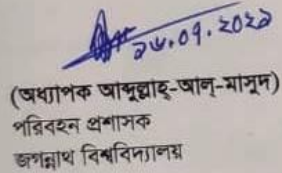 ২৮.০৭.২০২১
(অধ্যাপক আব্দুল্লাহ্-আল্-মাসুদ)
পরিবহন প্রশাসক
জগন্নাথ বিশ্ববিদ্যালয়